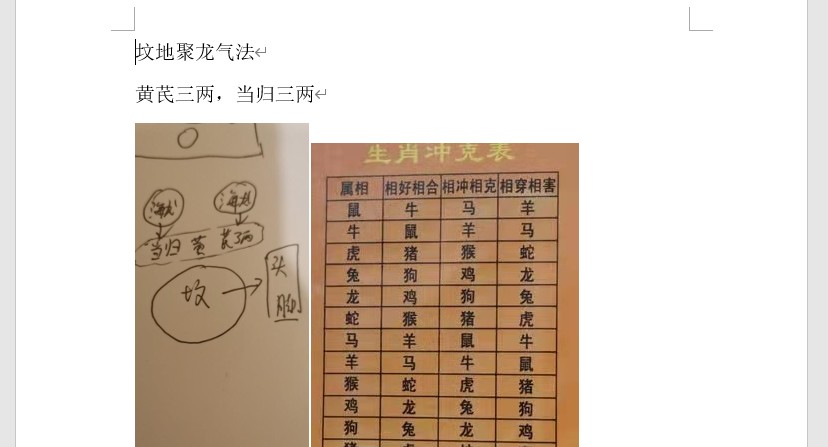 坟地聚龙气法
黄芪三两，当归三两
海龙 海龙
当归 黄 芪3两
坟
头
脚
生肖冲克表
属相 相好相合 相冲相克 相穿相害
鼠 牛 马 羊
牛 鼠 羊 马
虎 猪 猴 蛇
兔 狗 鸡 龙
龙 鸡 狗 兔
蛇 猴 猪 虎
马 羊 鼠 牛
羊 马 牛 鼠
猴 蛇 虎 猪
鸡 龙 兔 狗
狗 兔 龙 鸡